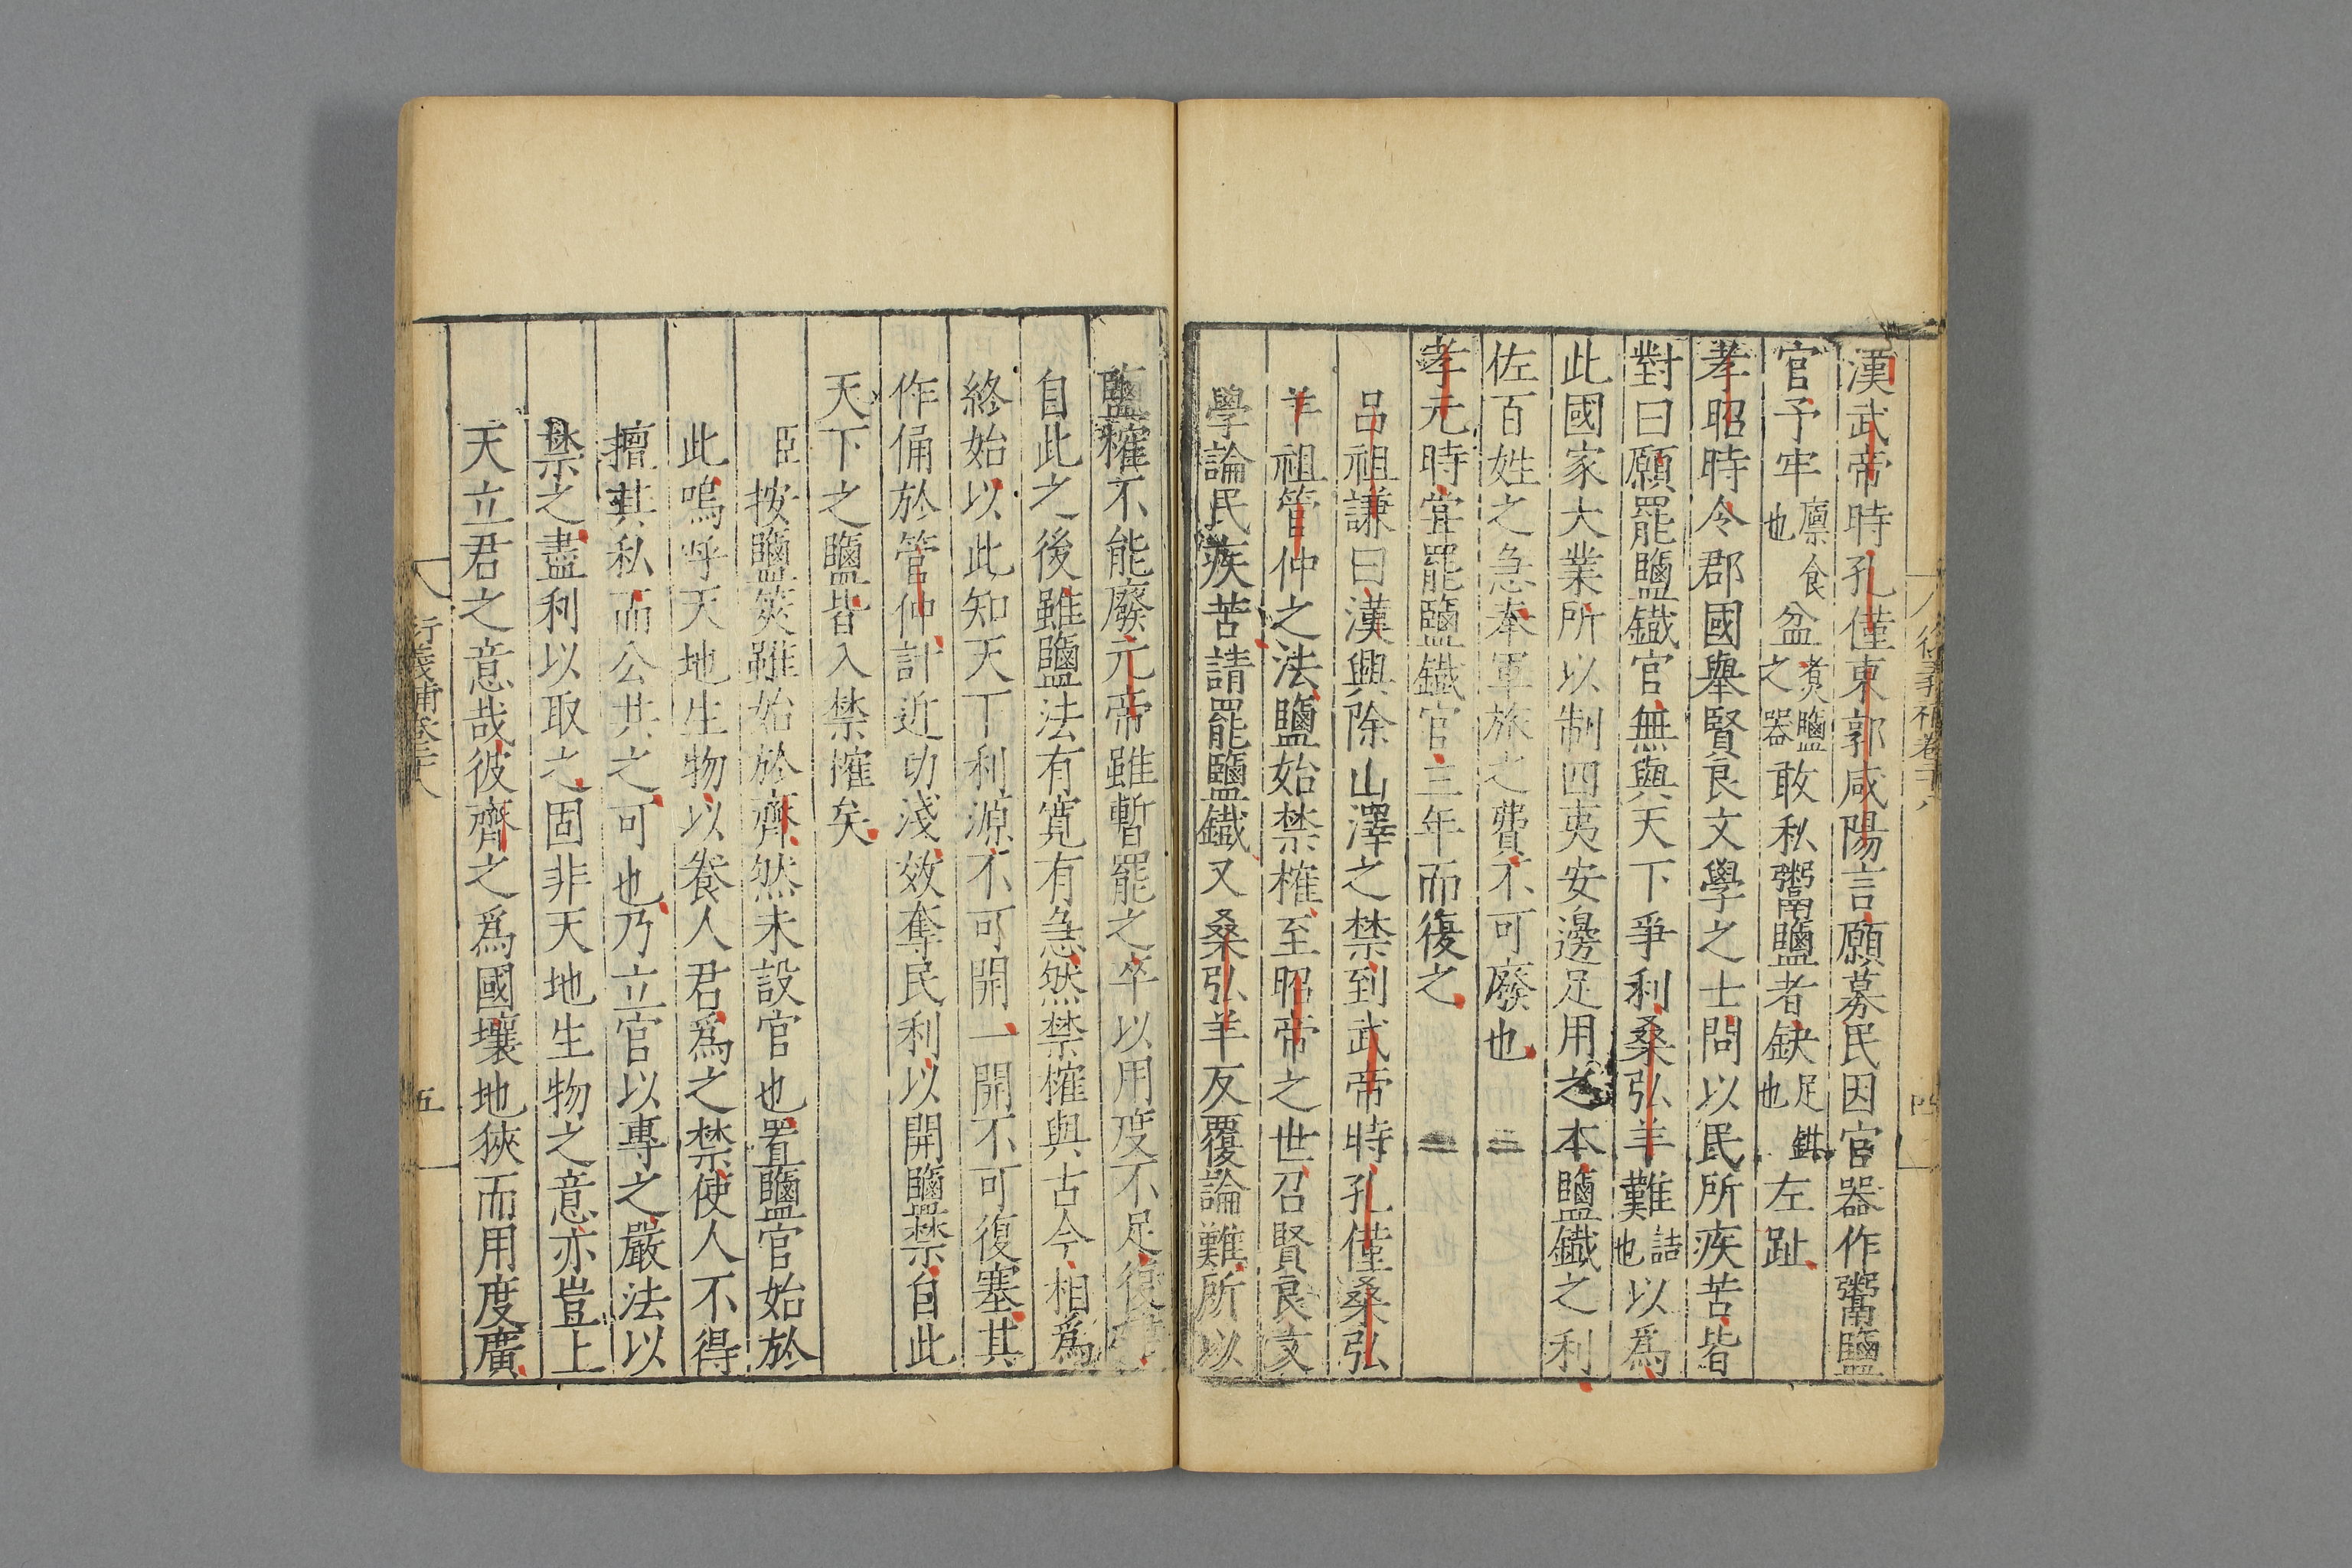 漢武帝時孔僅東郭咸陽言願募民因官器作鬻鹽
官予牢廪食也盆煮鹽之器敢私鬻鹽者鈇足鉗也左趾
孝昭時令郡國舉賢良文學之士問以民所疾苦皆
對曰願罷鹽鐡官無與天下爭利桑弘羊難詰也以爲
此國家大業所以制四夷安邊足用之本鹽鐡之利
佐百姓之急奉軍旅之費不可廢也
孝元時甞罷鹽鐡官三年而復之
呂祖謙曰漢興除山澤之禁到武帝時孔僅桑弘
羊祖管仲之法鹽始禁榷至昭帝之世召賢良文
學論民疾苦請罷鹽鐡又桑弘羊反覆論難所以
鹽榷不能廢元帝雖暫罷之卒以用度不足復
自此之後雖鹽法有寛有急然禁榷與古今相爲
終始以此知天下利源不可開一開不可復塞其
作俑於管仲計近功淺效奪民利以開鹽禁自此
天下之鹽皆入禁榷矣
臣按鹽筴雖始於齊然未設官也置鹽官始於
此嗚呼天地生物以養人君爲之禁使人不得
擅其私而公共之可也乃立官以專之嚴法以
禁之盡利以取之固非天地生物之意亦豈上
天立君之意哉彼齊之爲國壤地狹而用度廣
衍義補卷二十八
五